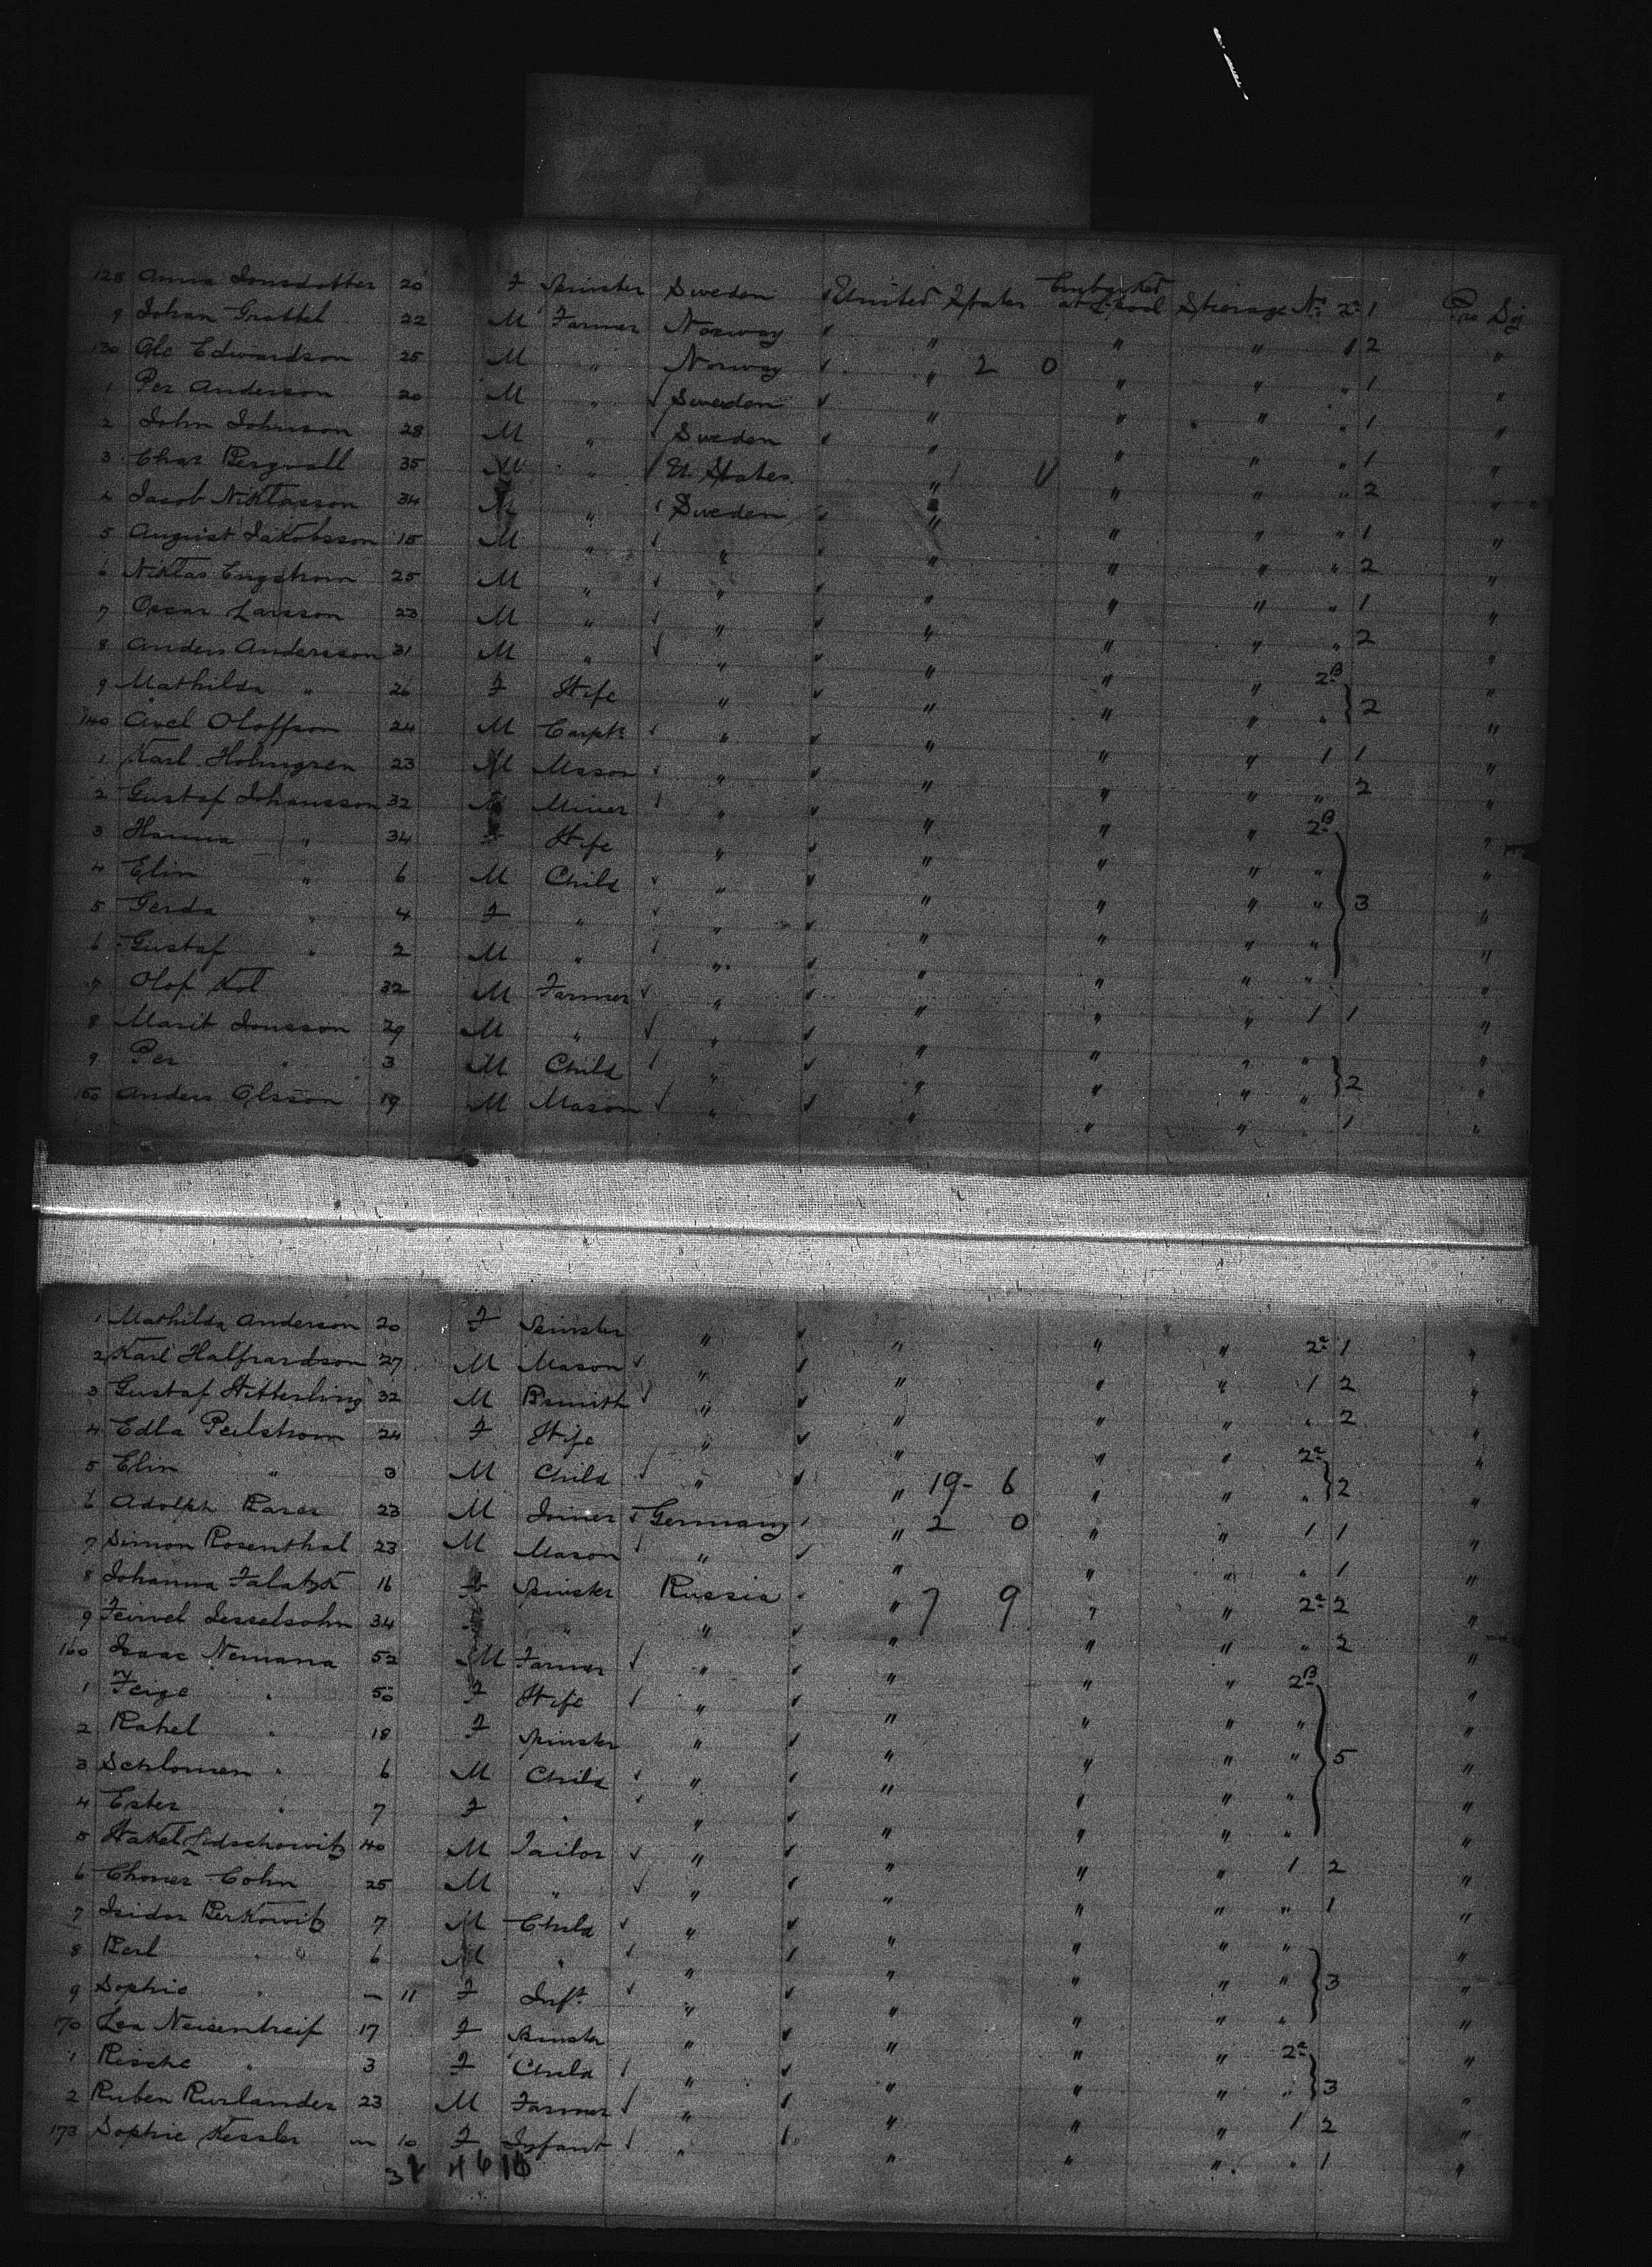 128 Anna Jonsdotter 20 F Spinster Sweden United States Embarked at L'pool Steerage No 2c 1 Pro Soj
9 Johan Grottel 22 M Farmer Norway " " " 1 2 "
130 Ole Edwardson 25 M " Norway " 2 0 " " " 1 "
1 Per Anderson 20 M " Sweden " " " " 1 "
2 John Johnson 28 M " Sweden " " " " 1 "
3 Chas Bergvall 35 M " U. States " " " " 2 "
4 Jacob Niklasson 34 M " Sweden " " " " 1 "
5 August Jakobsson 15 M " " " " " " 2 "
6 Niklas Engstrom 25 M " " " " " " 1 "
7 Oscar Larsson 23 M " " " " " " 2 "
8 Anders Andersson 31 M " " " " " 2B "
9 Mathilda " 26 F Wife " " " " " 2 "
140 Axel Oloffson 24 M Carptr " " " " 1 1 "
1 Karl Holmgren 23 M Mason " " " " " 2 "
2 Gustaf Johansson 32 M Miner " " " " 2B "
3 Hanna " 34 F Wife " " " " " "
4 Elin " 6 M Child " " " " " 3 "
5 Gerda " 4 F " " " " " " "
6 Gustaf " 2 M " " " " " " "
7 Olof Kol 32 M Farmer " " " " 1 1 "
8 Marit Jonsson 29 M " " " " " " "
9 Per " 3 M Child " " " " " 2 "
150 Anders Olsson 19 M Mason " " " " " 1 "
1 Mathilda Anderson 20 F Spinster " " " " 2c 1 "
2 Karl Halfvardson 27 M Mason " " " " 1 2 "
3 Gustaf Witterling 32 M Bsmith " " " " " 2 "
4 Edla Peilstrom 24 F Wife " " " " 2c "
5 Elin " 3 M Child " " 19-6 " " " 2 "
6 Adolph 23 M Joiner Germany " 2 0 " " 1 1 "
7 Simon Rosenthal 23 M Mason " " " " " 1 "
8 Johanna 16 F Spinster Russia " 7 9 " " 2c 2 "
9 Jesselsohn 34 " " " " " " 2 "
160 Isaac Nemana 52 M Farmer " " " " 2B "
1 Feige " 50 F Wife " " " " " "
2 Rahel " 18 F Spinster " " " " " 5 "
3 Schlomen " 6 M Child " " " " " "
4 Ester " 7 F " " " " " " "
5 Lidschowitz 40 M Tailor " " " " 1 2 "
6 Choner Cohn 25 M " " " " " " 1 "
7 Isidor Berkowitz 7 M Child " " " " " "
8 Berl " " 6 M " " " " " " 3 "
9 Sophie " — 11 F Inft " " " " " "
170 Lea Neisentreif 17 F Spinster " " " " 2c "
1 Rische " 3 F Child " " " " " 3 "
2 Ruben Kurlander 23 M Farmer " " " " 1 2 "
173 Sophie Kessler — 10 F Infant " " " " " 1 "